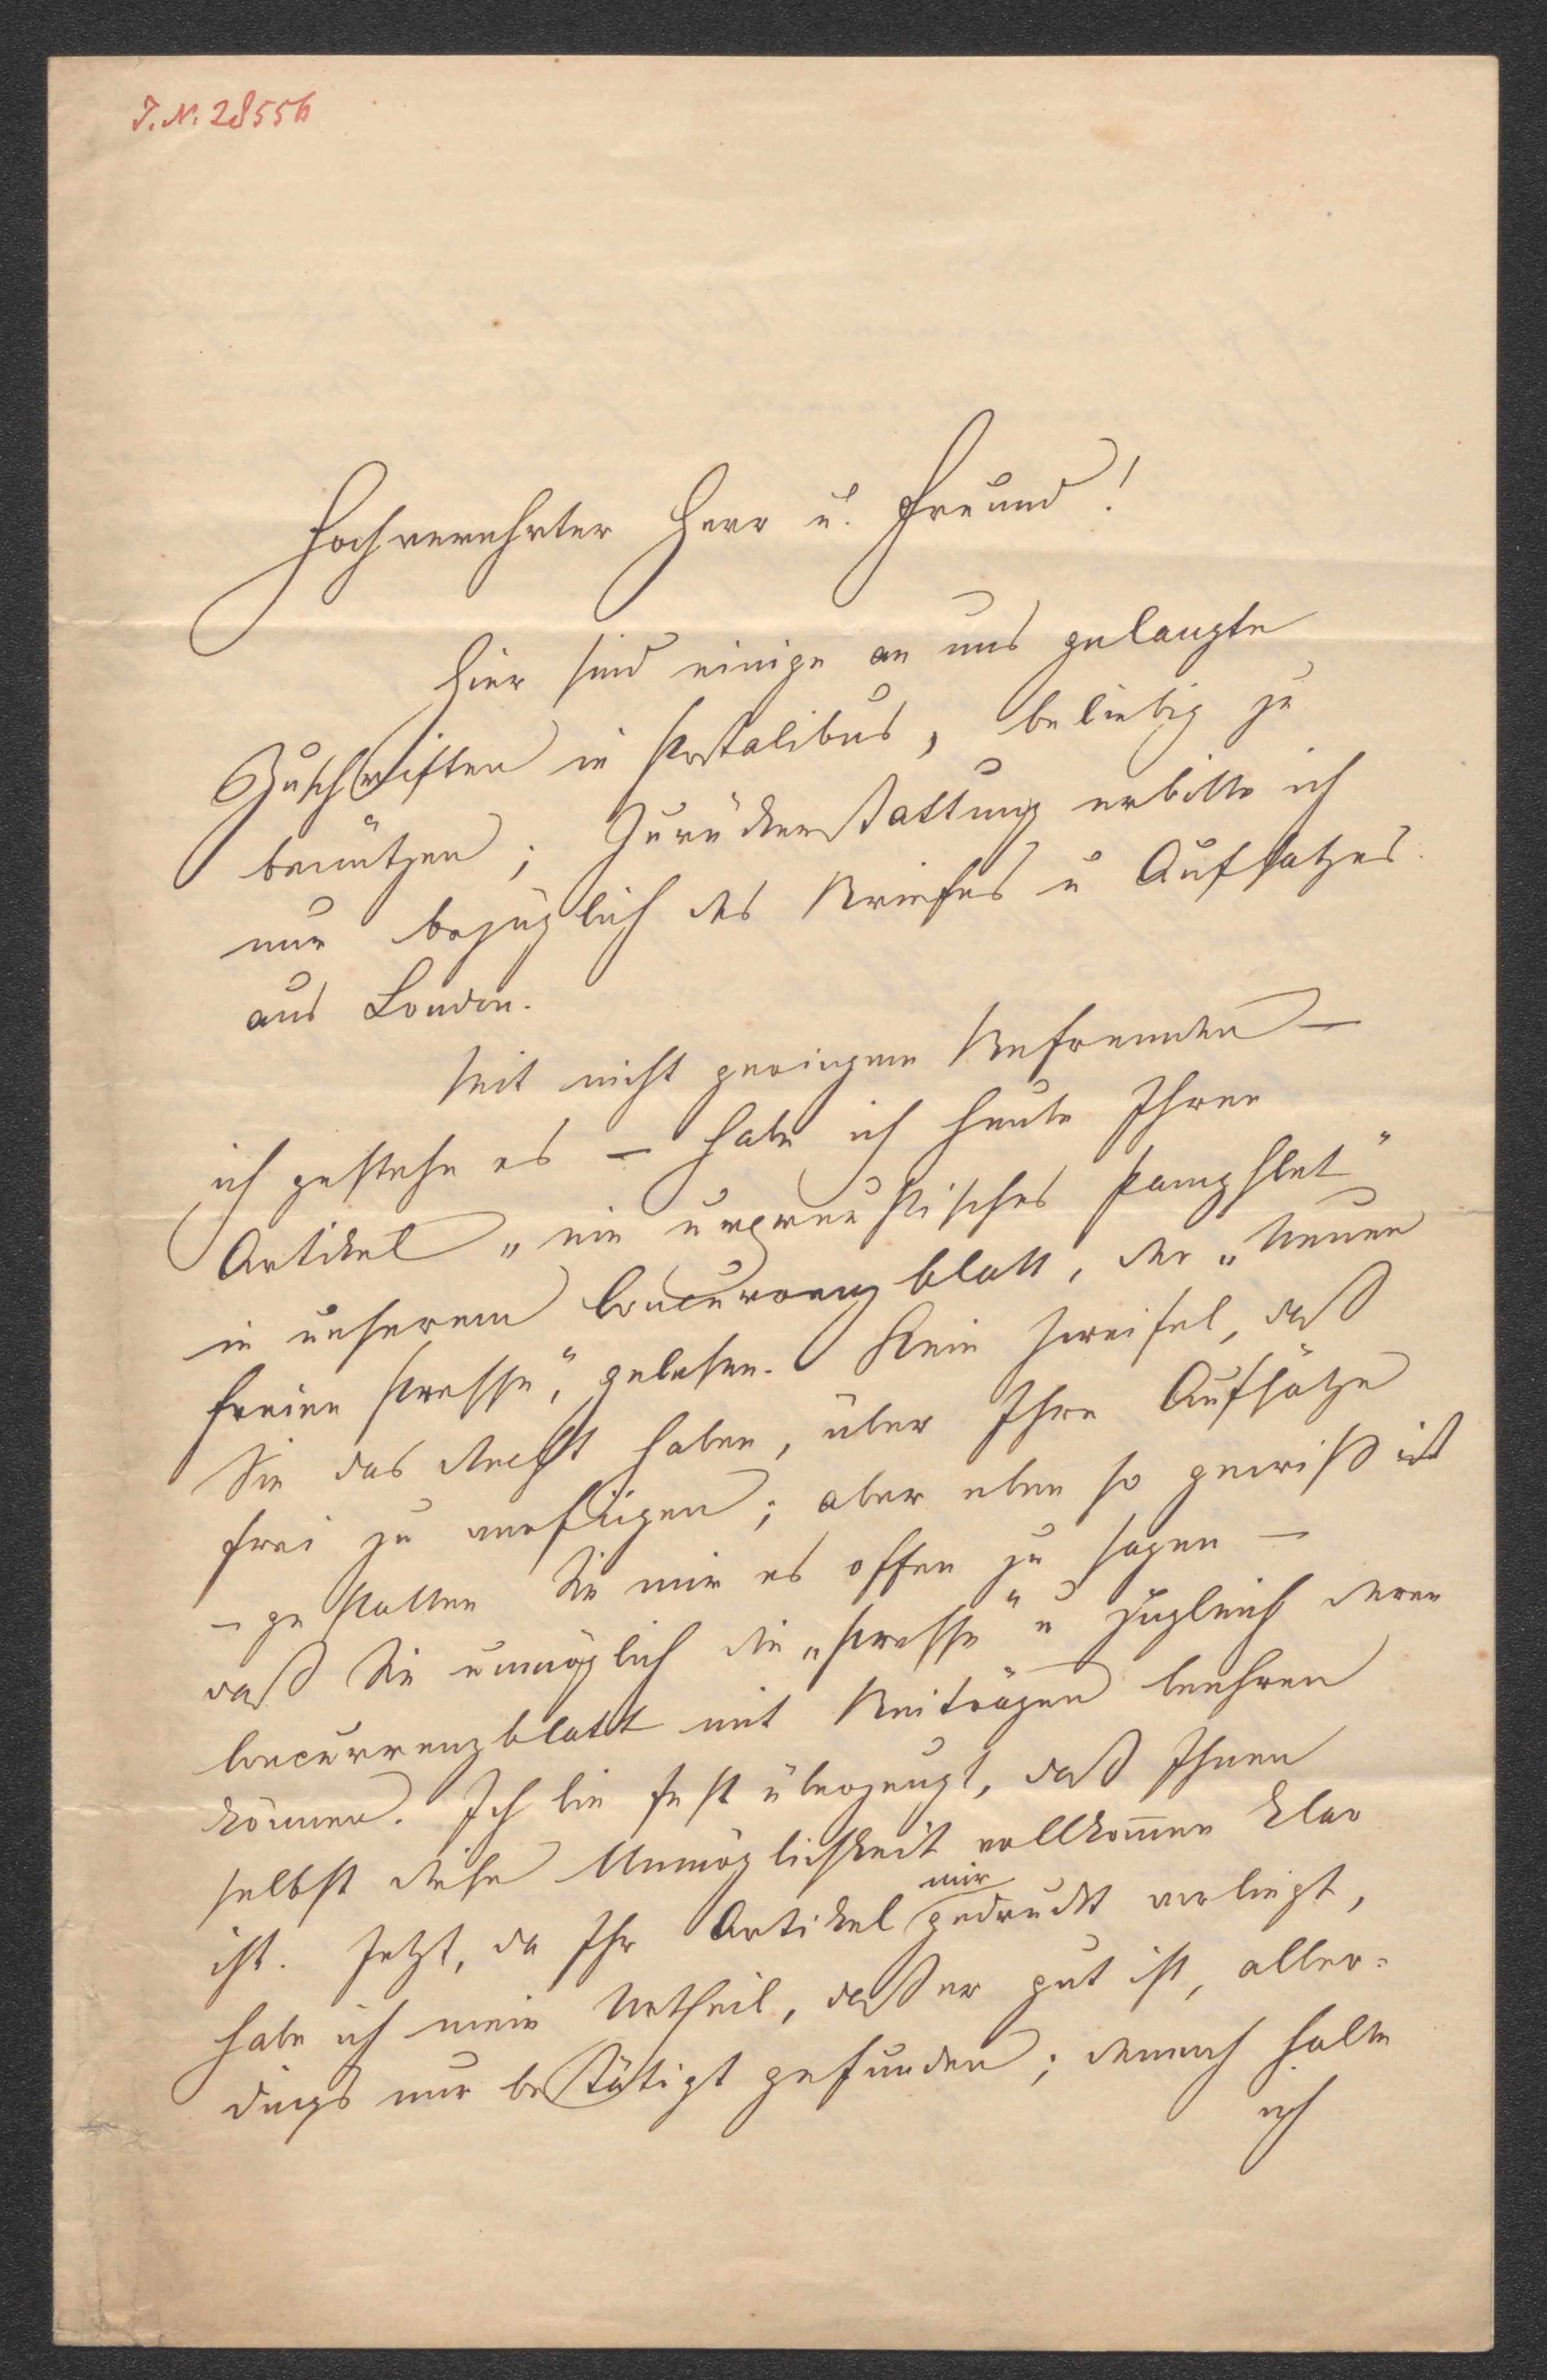 J. N. 28556
Hochverehrter Herr u. Freund!
Hier sind einige an uns gelangte
Zuschriften in Postalibus, beliebig zu
benützen; Zurückerstattung erbitte ich
nur bezüglich des Briefes u Aufsatzes
aus London.
Mit nicht geringem Befremden –
ich gestehe es – habe ich heute Ihren
Artikel „ein urpreußisches Pamphlet"
in unserem Concurrenzblatt, der „Neuen
freien Presse", gelesen. Kein Zweifel, daß
Sie das Recht haben, über Ihre Aufsätze
frei zu verfügen; aber eben so gewiß ist
– gestatten Sie mir es offen zu sagen –
daß Sie unmöglich die „Presse" u zugleich deren
Concurrenzblatt mit Beiträgen beehren
können. Ich bin fest überzeugt, daß Ihnen
selbst diese Unmöglichkeit vollkom̄en klar
ist. Jetzt, da Ihr Artikel mir gedruckt vorliegt,
habe ich mein Urtheil, daß er gut ist, aller-
dings nur bestätigt gefunden; dennoch halte
ich